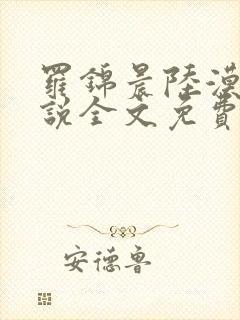 羅錦晨陸漠
說全文免費
安德魯